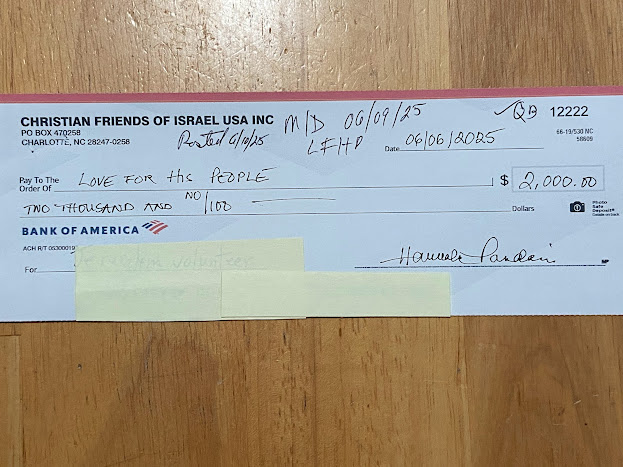 CHRISTIAN FRIENDS OF ISRAEL USA INC M/D 06/09/25 QB 12222
PO BOX 470258
CHARLOTTE, NC 28247-0258 Posted 6/10/25 LFHP
66-19/530 NC
58609
Date 06/06/2025
Pay To The
Order Of LOVE FOR HIS PEOPLE $ 2,000.00
TWO THOUSAND AND NO/100 Dollars
Photo
Safe
Deposit®
Details on back
BANK OF AMERICA
ACH R/T 05300019
For Jerusalem volunteer
MP